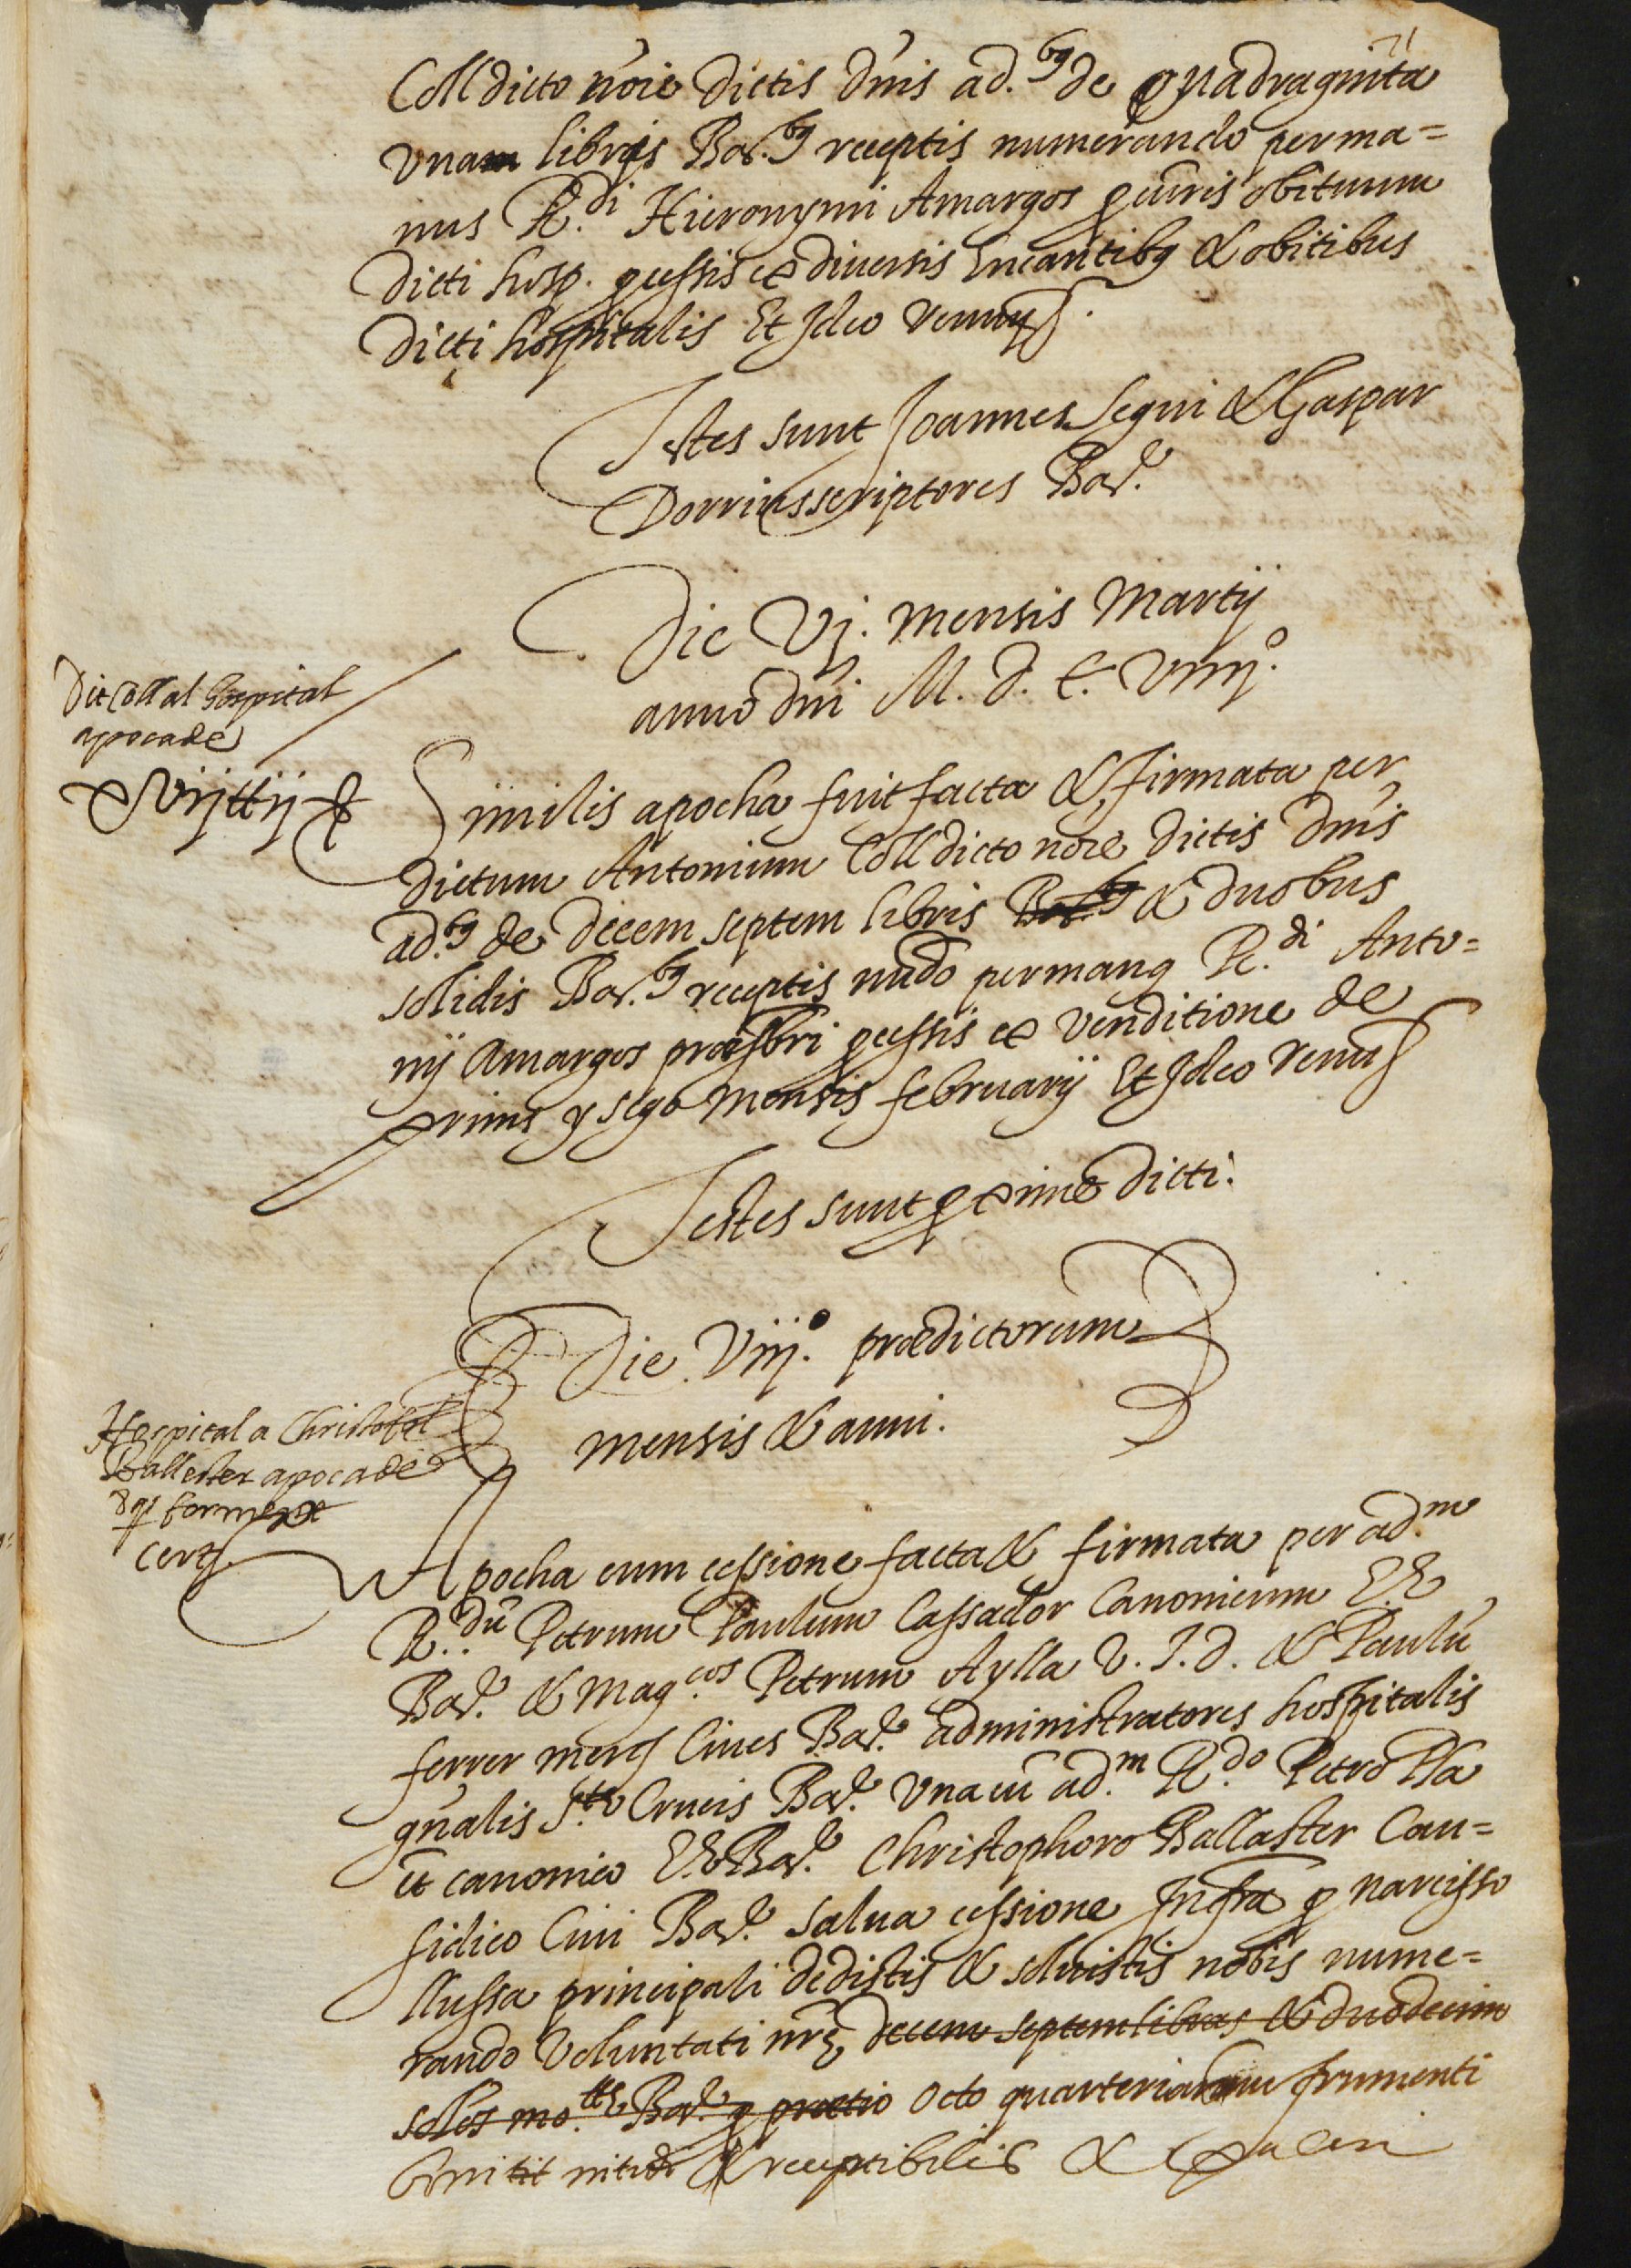 71
Coll dicto noie dictis dnis ad.bg de quadraginta
unam libris Bar.bg receptis numerando per ma=
nus R.di Hieronymi Amargos bitunm
dicti hosp. pcessis ex diversis Encantibq & obitibus
dicti hospitalis Et Ideo renun
Testes sunt Joannes Segui & Gaspar
Dorrius scriptores Bar.e
Die vj. mensis Martij
anno dni M. d. L. viiij.o
Dit Coll al hospital
apoca de
xvijttij ƥ
Similis apocha fuit facta & firmata per
dictum Antonium Coll dicto noie dictis dnis
ad.bg de decem septem libris Bar.bg & duobus
solidis Bar.bg receptis nudo per manq R.di Anto=
nij Amargos præsbri pcessis ex venditione de
prims y sego mensis februarij Et Ideo renun
Testes sunt pxime dicti.
Die viij.o prædictorum
mensis & anni.
Hospital a Christofol
Ballester apoca de
8 qr forment
cert
Apocha cum cessione facta & firmata per ad.m
R.du Petrum Paulum Cassador Canonicum EE
Bar.e & Mag.cos Petrum Aylla V. J. d. & Paulu
ferrer merc Cives Bar.e administratores hospitalis
gnalis S.te Crucis Bar.e una cu ad.m R.do Petro Pla
et canonico EE Bar.e Christophoro Ballaster Cau=
sidico Civi Bar.e salva cessione Infra p narcisso
llussa principali dedistis & solvistis nobis nume=
rando voluntati nre decem septem libras & duodecim
solos mo.te Bar.e p prætio octo quarteriarum frumenti
nitidi & receptibilis &